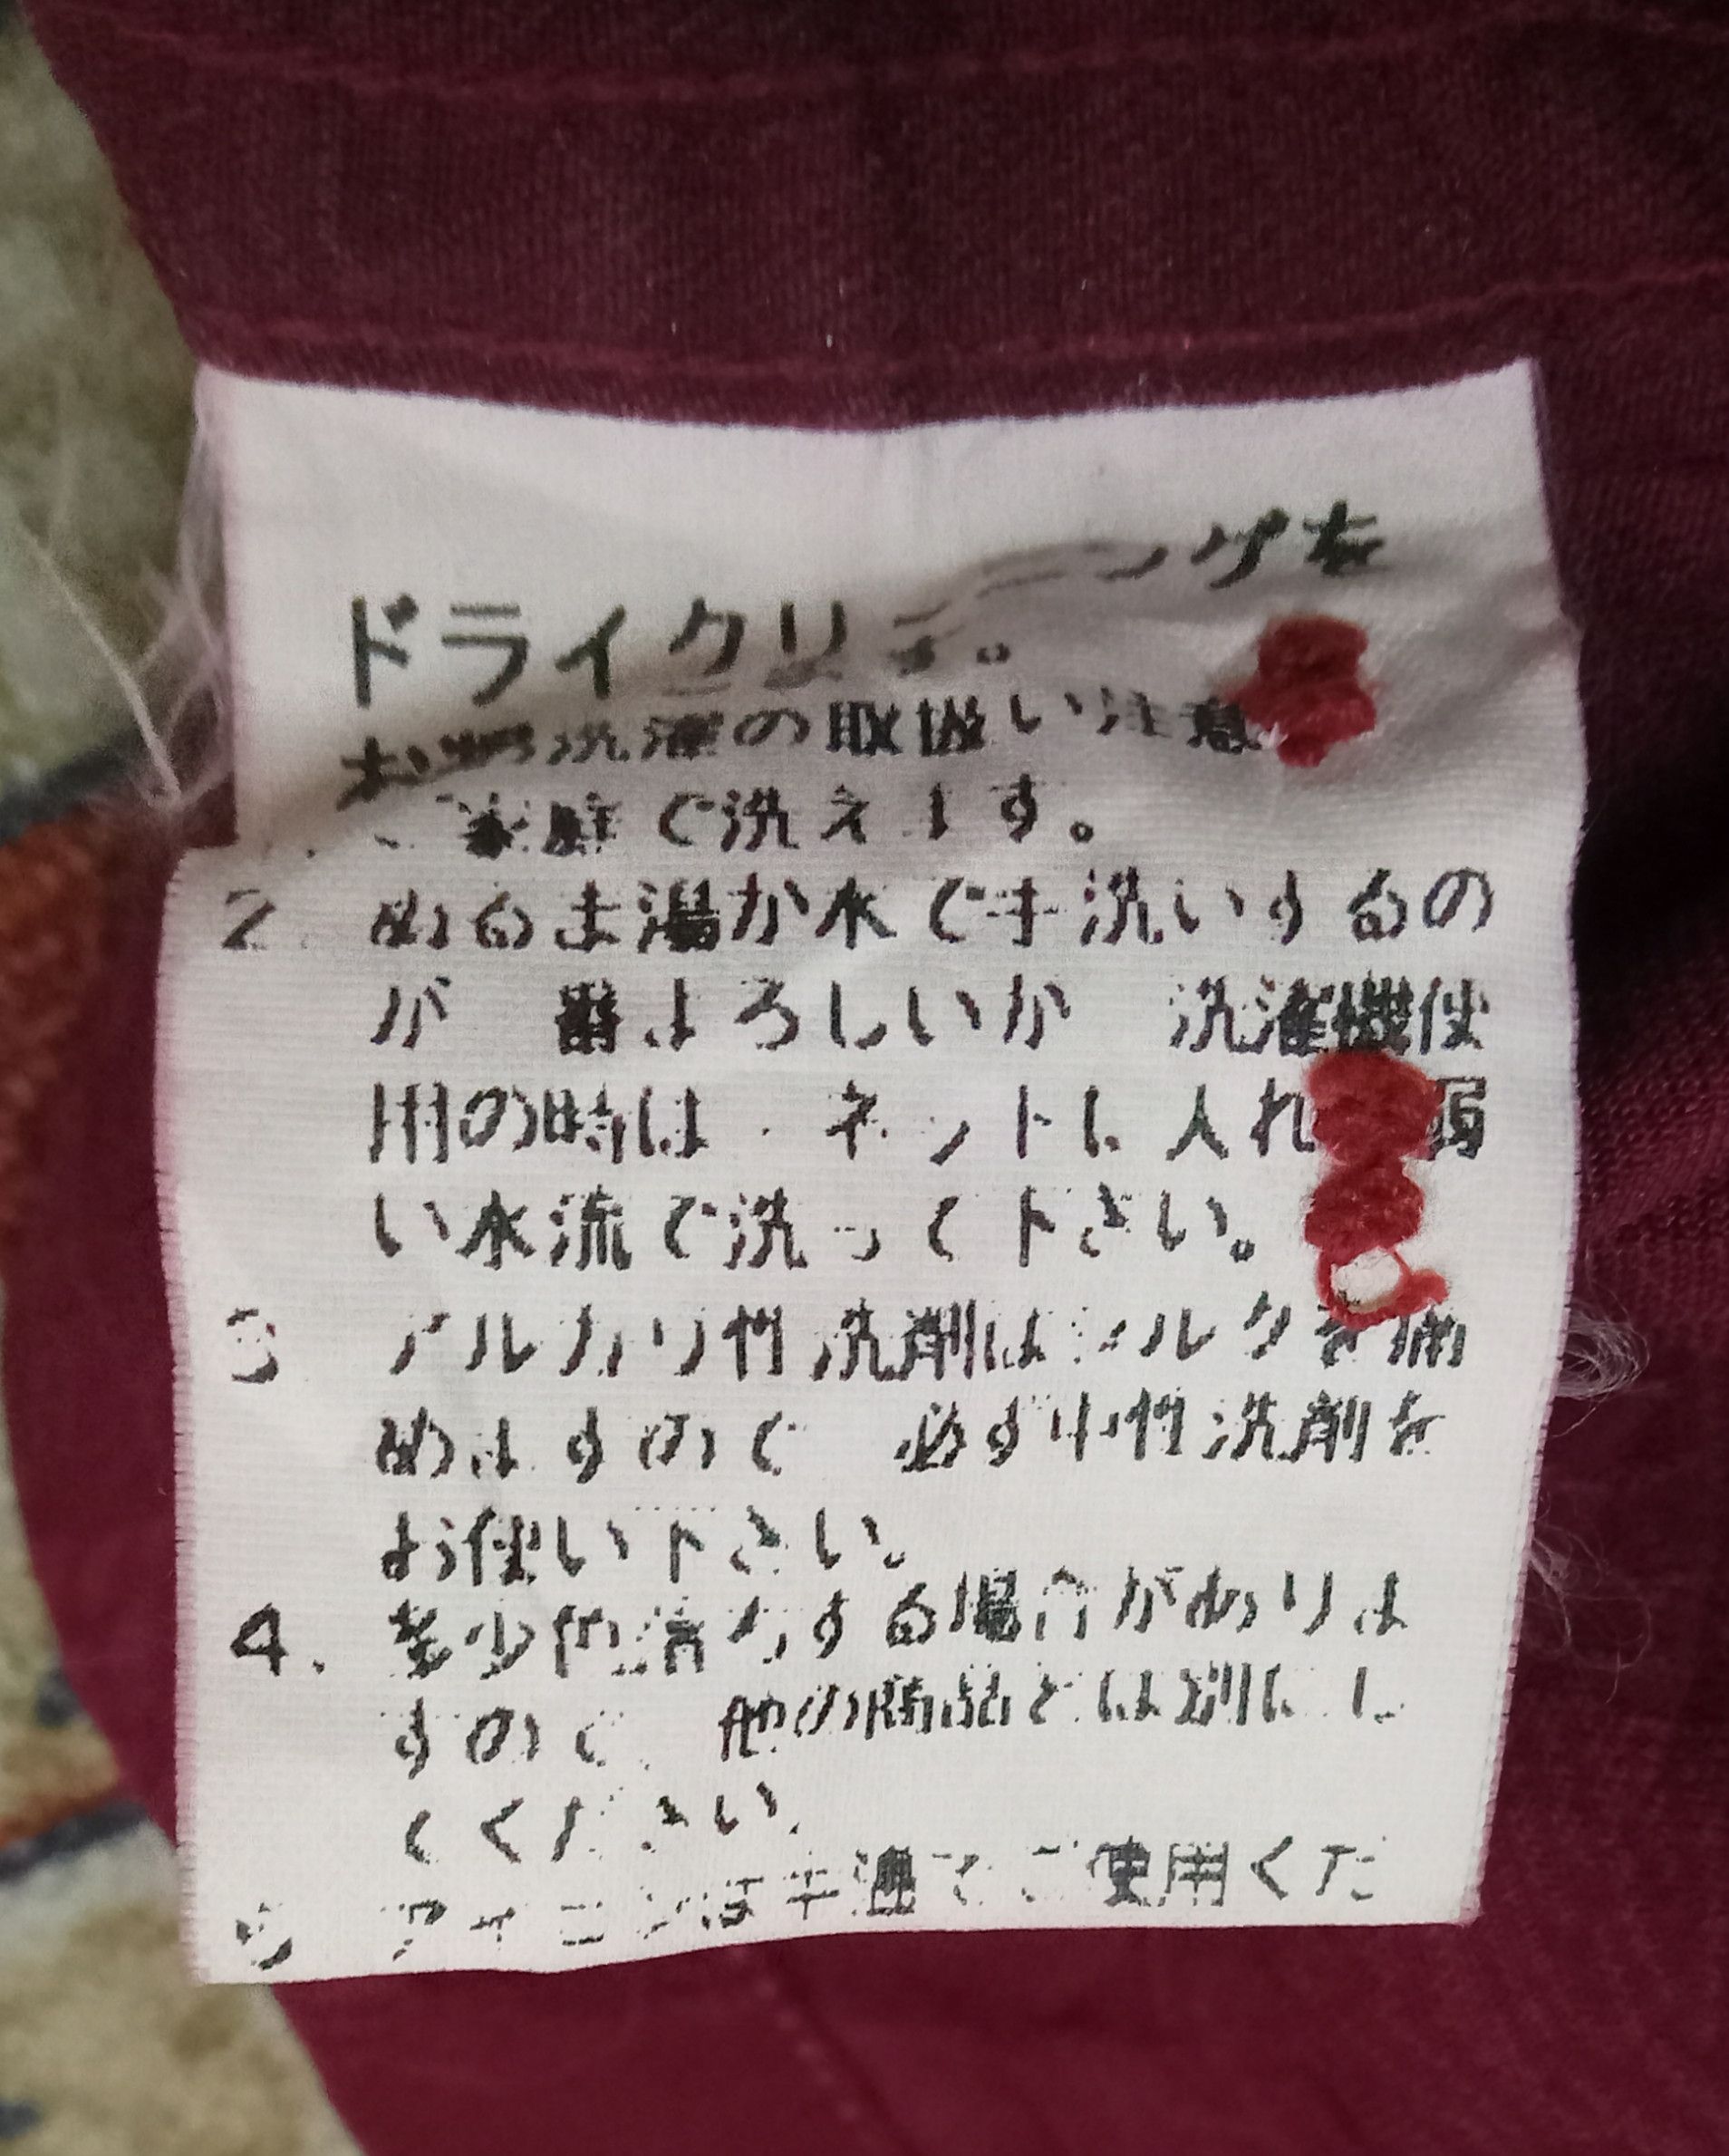 ドライクリーニングを
お洗濯の取扱い注意
ご家庭で洗えます。
2. ぬるま湯か水で手洗いするの
が 番よろしいが 洗濯機使
用の時は、ネットに入れ 弱
い水流で洗って下さい。
3 アルカリ性洗剤はシルクを痛
めますので 必ず中性洗剤を
お使い下さい。
4. 多少色落ちする場合がありま
すので、他の商品とは別にし
てください。
5 アイロンは 適でご使用くだ